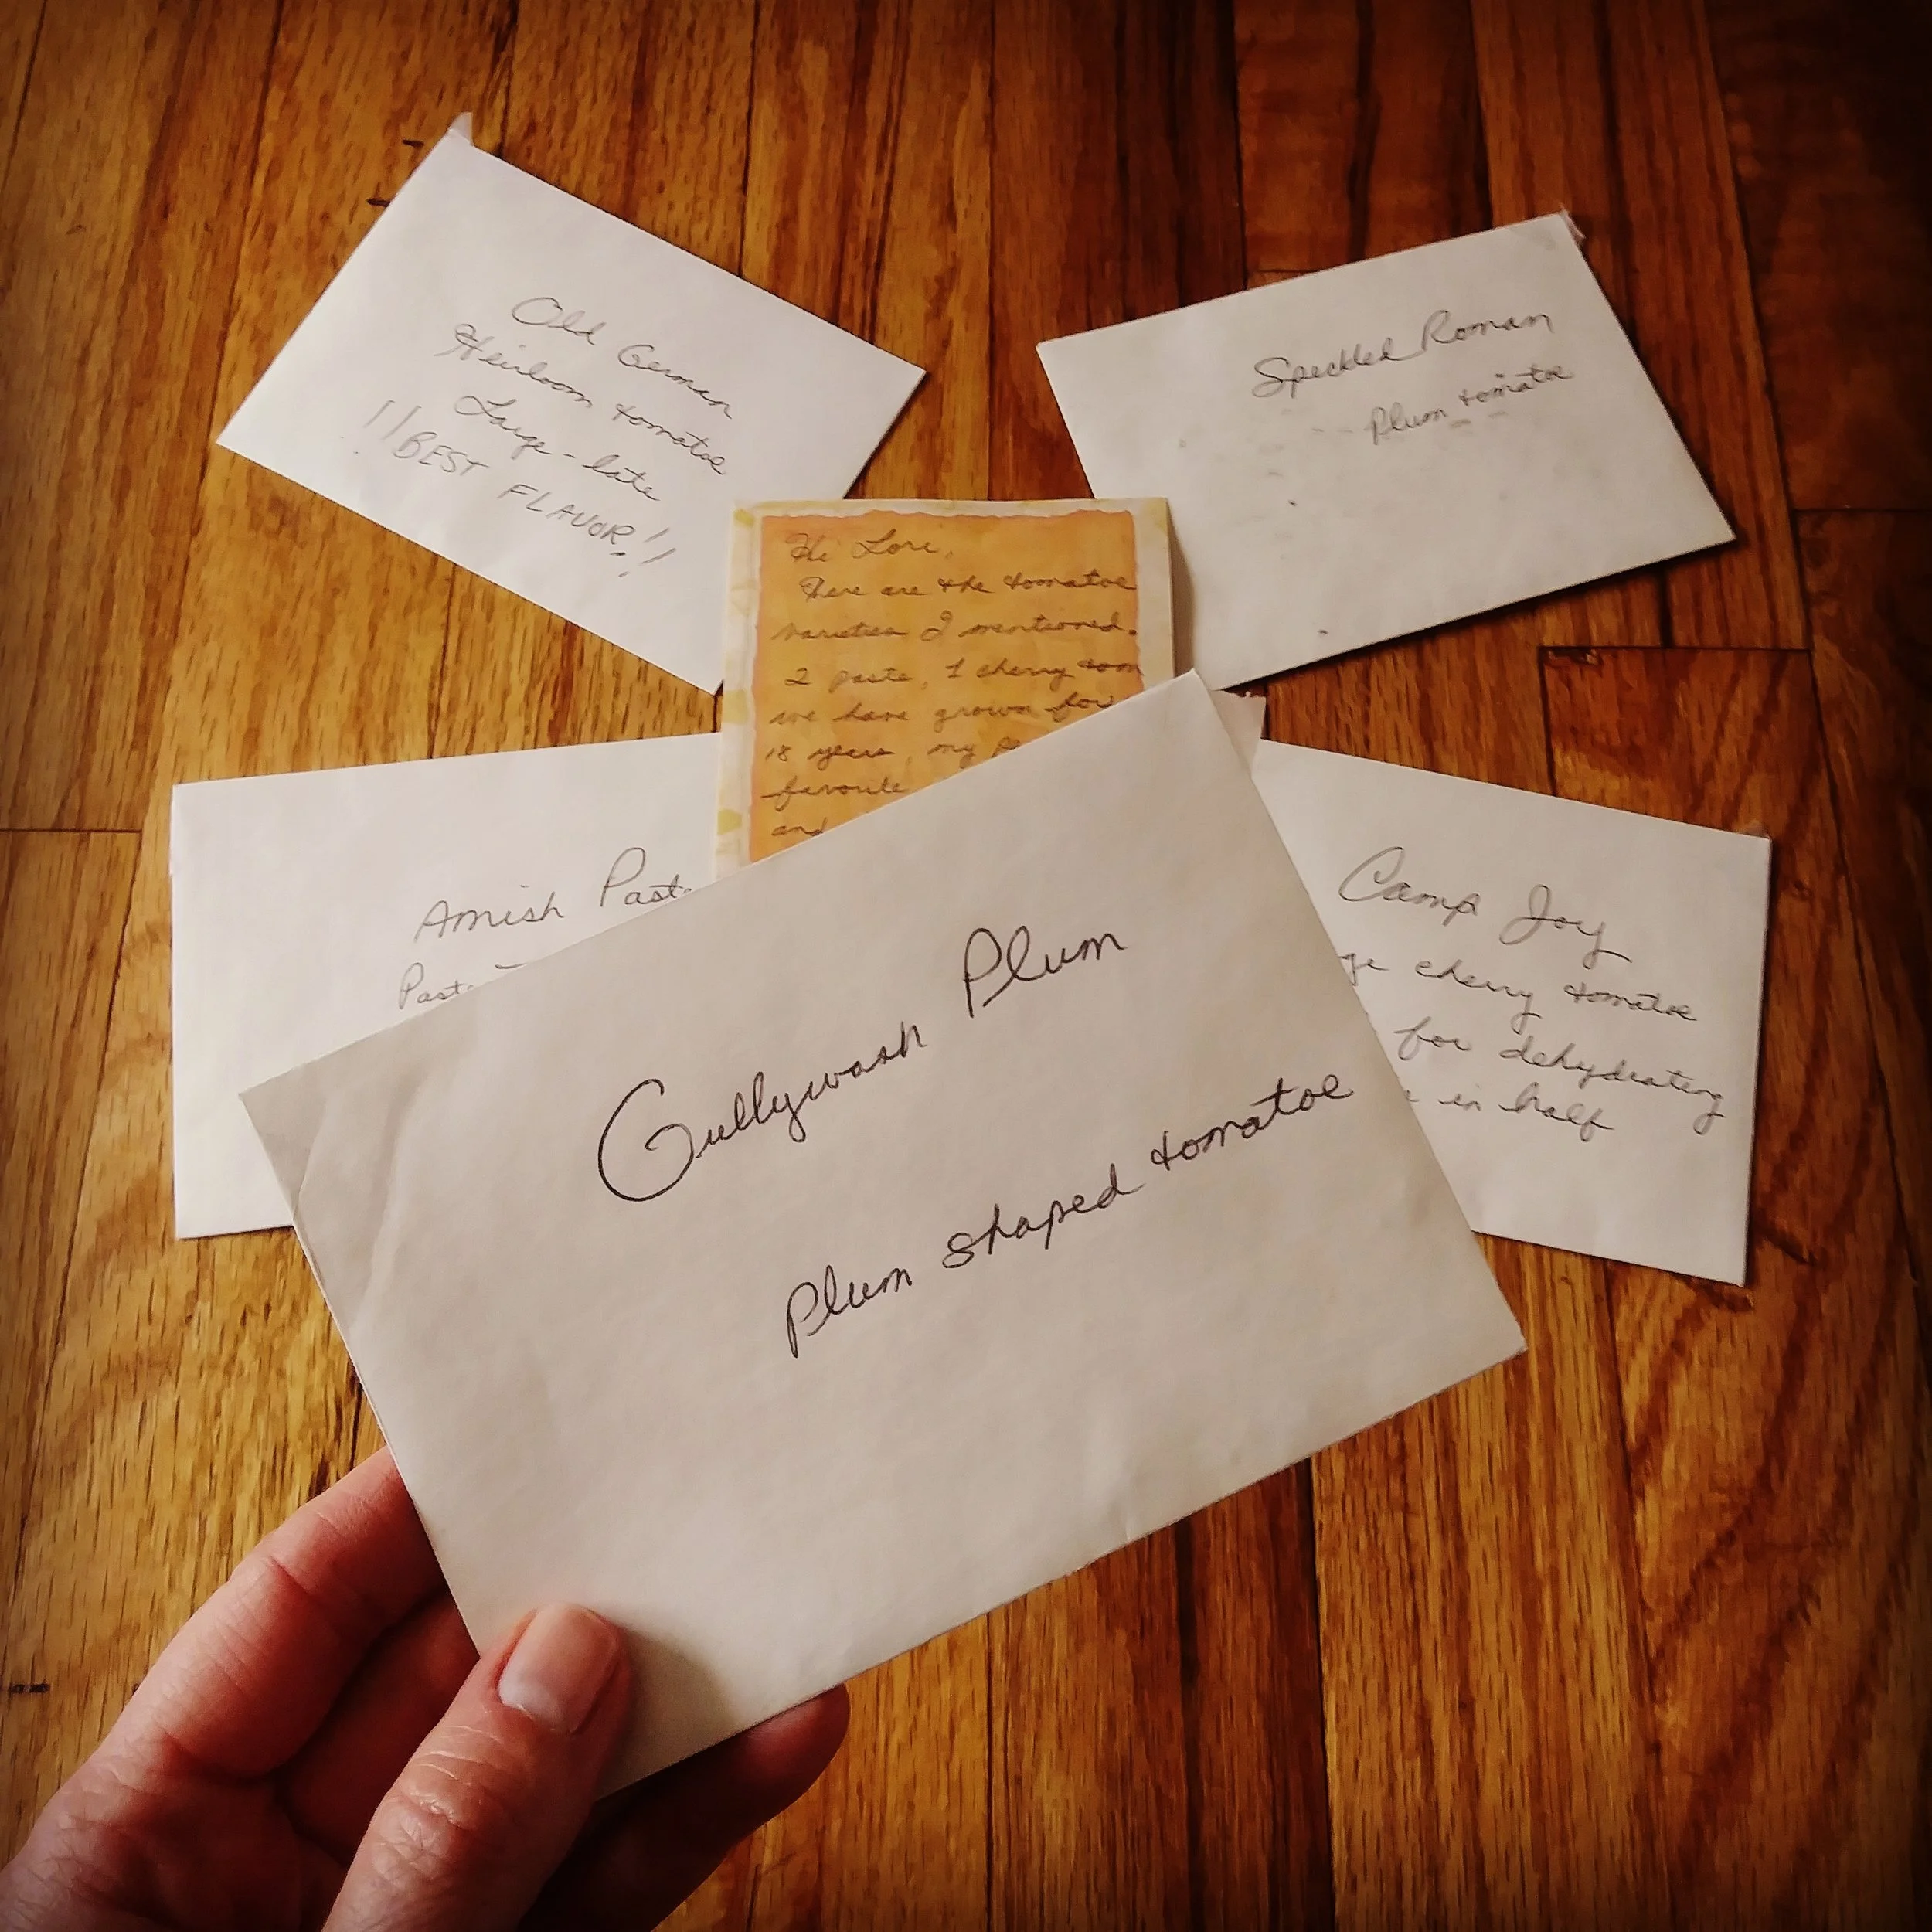 Old German
Heirloom tomatoe
Large - late
!! BEST FLAVOR!!
Speckled Roman
Plum tomatoe
Hi Lori,
Here are the tomatoe
varieties I mentioned.
2 paste, 1 cherry tom
we have grown for
18 years, my
favorite
and
Amish Past
Past
Camp Joy
ge cherry tomatoe
for dehydrating
in half
Gullywash Plum
Plum shaped tomatoe